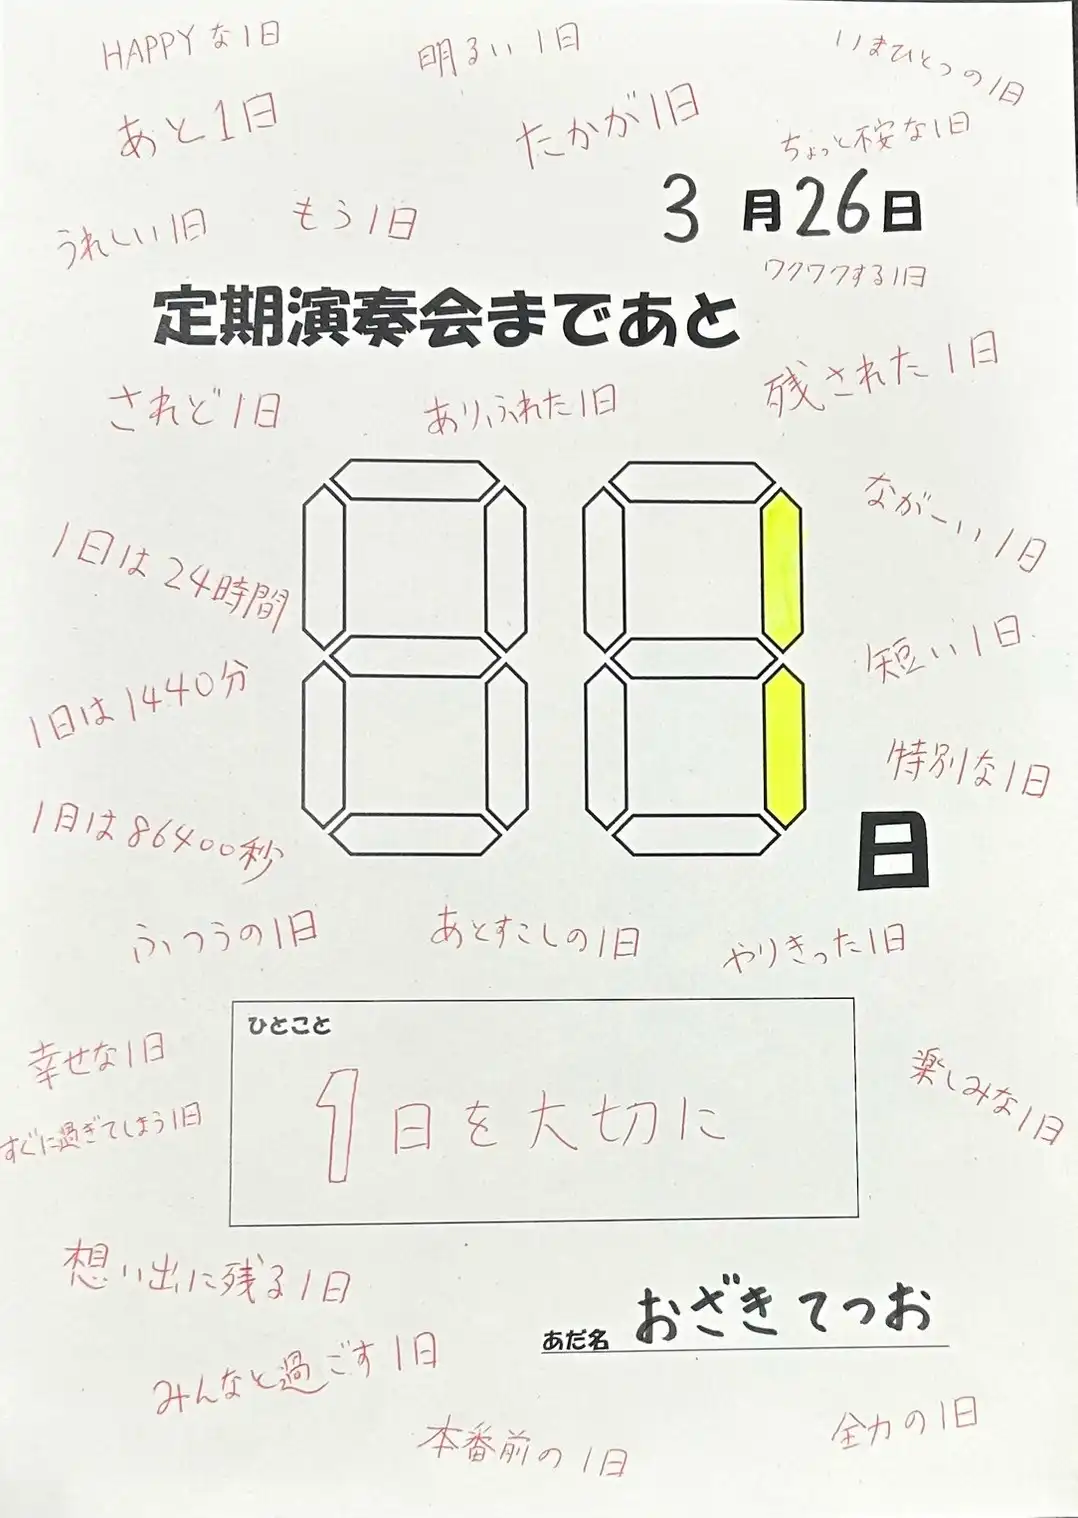 HAPPYな1日
明るい1日
いまひとつの1日
あと1日
たかが1日
ちょっと不安な1日
3月26日
うれしい1日
もう1日
ワクワクする1日
定期演奏会まであと
されど1日
ありふれた1日
残された1日
1
日
ながーい1日
1日は24時間
短い1日
1日は1440分
特別な1日
1日は86400秒
ふつうの1日
あとすこしの1日
やりきった1日
ひとこと
1日を大切に
幸せな1日
すぐに過ぎてしまう1日
楽しみな1日
想い出に残る1日
あだ名 おざきてつお
みんなと過ごす1日
本番前の1日
全力の1日